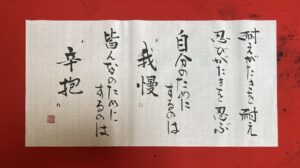 耐えがたきを耐え
忍びがたきを忍ぶ
自分のために
するのは
“我慢”
皆んなのために
するのは
“辛抱”